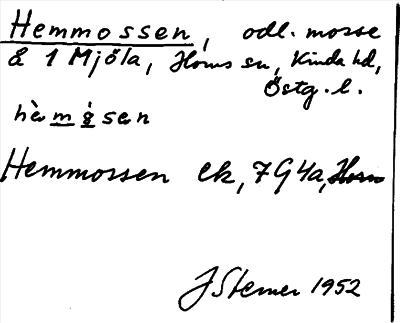 Hemmossen, odl. mosse
å 1 Mjöla, Horns sn, Kinda hd,
Östg. l.
hèm̲ ås̲en
Hemmossen ek, 7G4a, Horn
J Sterner 1952